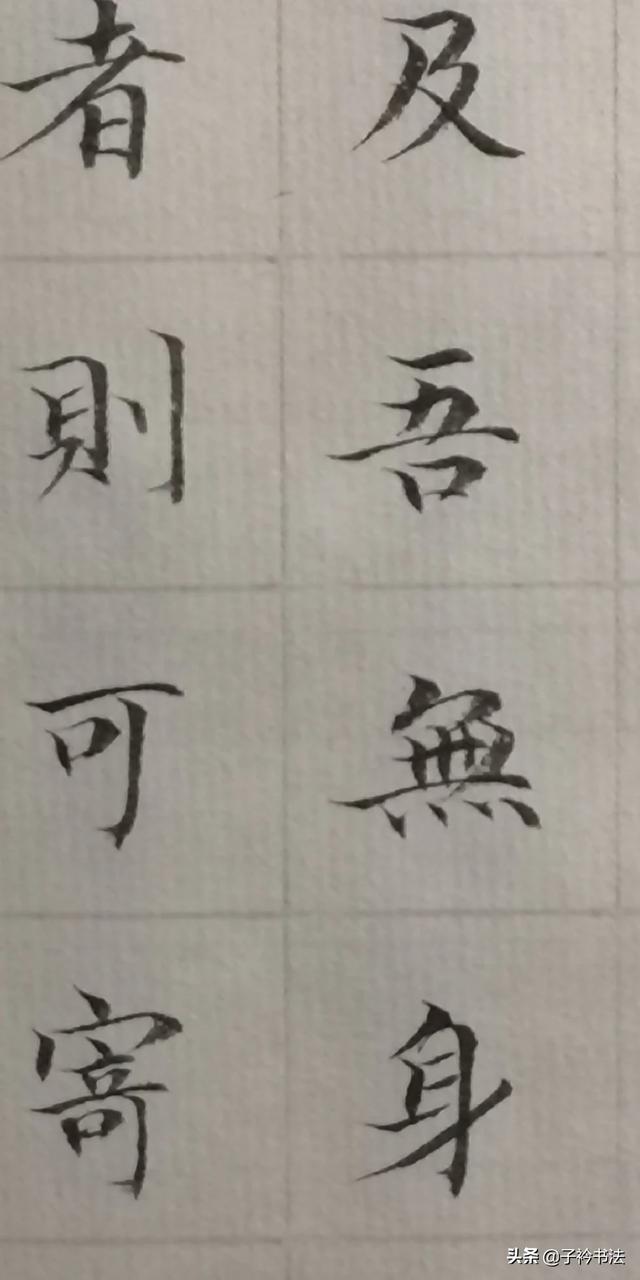 及吾無身
者則可寄
头条 @子衿书法